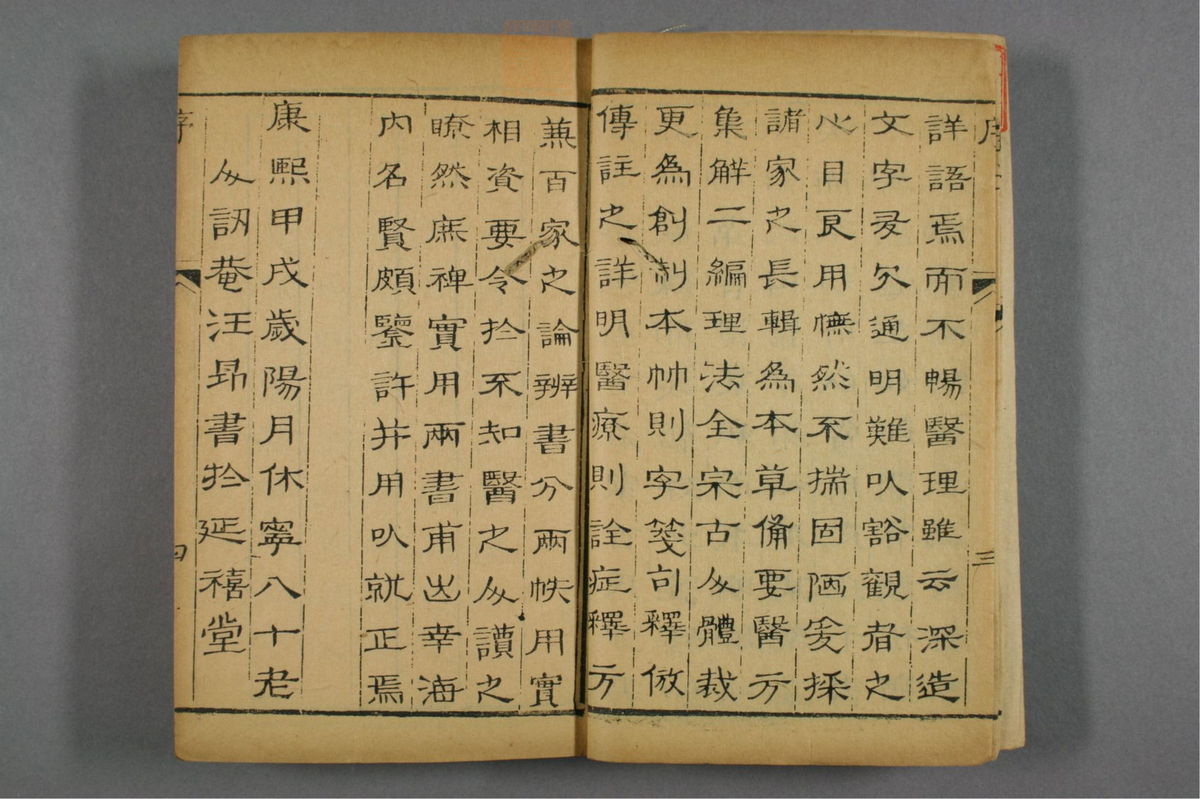 序
三
詳語焉而不暢醫理雖云深造
文字多欠通明難以豁觀者之
心目良用憮然不揣固陋爰採
諸家之長輯為本草備要醫方
集解二編理法全宗古人體裁
更為創制本艸則字箋句釋倣
傳註之詳明醫療則詮症釋方
兼百家之論辨書分兩帙用實
相資要令扵不知醫之人讀之
瞭然庶裨實用兩書甫出幸海
內名賢頗鑒許并用以就正焉
康熙甲戌歲陽月休寧八十老
人訒菴汪昂書扵延禧堂
序
四